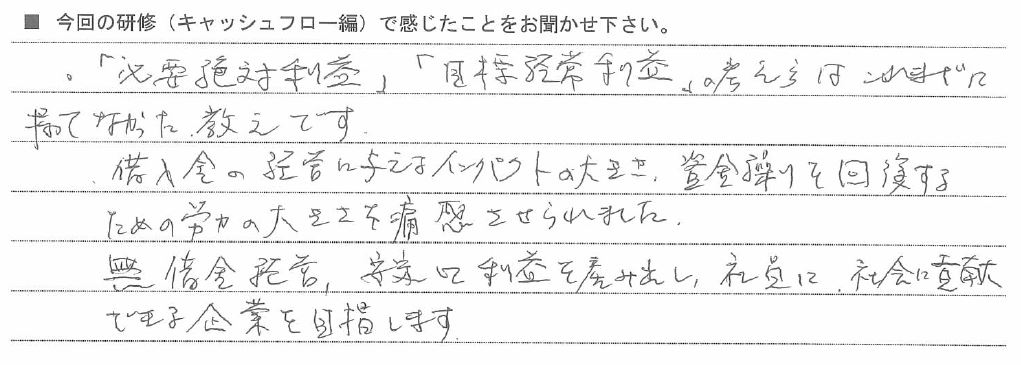 ■ 今回の研修（キャッシュフロー編）で感じたことをお聞かせ下さい。
・「必要絶対利益」「目標経常利益」の考え方はこれまでに
持てなかった教えです。
・借入金の経営に与えるインパクトの大きさ、資金繰りを回復する
ための労力の大きさを痛感させられました。
無借金経営、安定して利益を産み出し、社員に、社会に貢献
できる企業を目指します